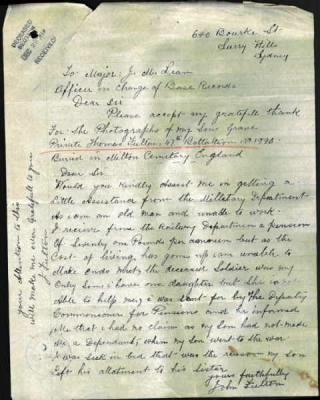 DECEASED
DEC
RECEIVED
640 Bourke St
Surry Hills
Sydney
To Major J. M. Lean
Officer in Charge of Base Records
Dear Sir
Please accept my gratefull thank
For the Photographs of my Sons Grave
Private Thomas Fulton 47th Battalion No 1920
Buried in Melton Cemetery England
Dear Sir
Would you kindly assist me in getting a
Little assistance from the Millitary Department
As I am an old man and unable to work
I receive from the Railway Department a pension
Of Twenty one Pounds per annum but as the
Cost of living has gone up I am unable to
Make ends meet the deceased Soldier was my
Only Son I have one daughter but She is not
Able to help me I was sent for by the Deputy
Commissioner for Pensions and he informed
Me that I had no claim as my Son had not made
Me a Dependant when my Son went to the War
I was sick in bed that was the reason my Son
Left his allotment to his sister
yours faithfully
John Fulton
your attention to this
will make me ever gratefull to you
J. Fulton